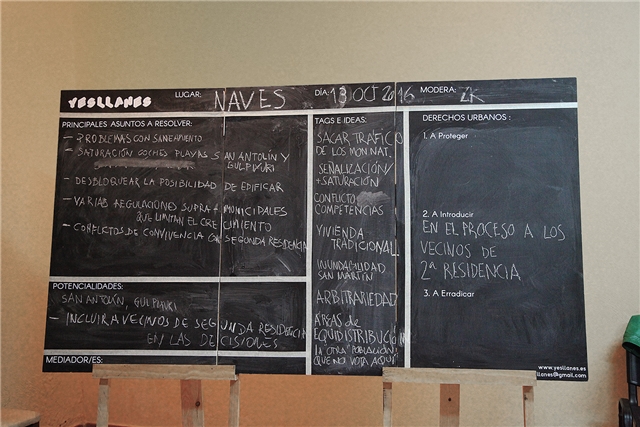 YESLLANES
LUGAR: NAVES DÍA: 13 OCT 2016 MODERA: 2K
PRINCIPALES ASUNTOS A RESOLVER:
- PROBLEMAS CON SANEAMIENTO
- SATURACIÓN COCHES PLAYAS SAN ANTOLÍN Y
GULPIYURI
- DESBLOQUEAR LA POSIBILIDAD DE EDIFICAR
- VARIAS REGULACIONES SUPRA+MUNICIPALES
QUE LIMITAN EL CRECIMIENTO
- CONFLICTOS DE CONVIVENCIA CON SEGUNDA RESIDENCIA
POTENCIALIDADES:
SAN ANTOLÍN, GULPIYURI
- INCLUIR A VECINOS DE SEGUNDA RESIDENCIA
EN LAS DECISIONES
MEDIADOR/ES:
TAGS E IDEAS:
SACAR TRÁFICO
DE LOS MON.NAT.
SEÑALIZACIÓN/
+SATURACIÓN
CONFLICTO
COMPETENCIAS
VIVIENDA
TRADICIONAL
INUNDABILIDAD
SAN MARTÍN
ARBITRARIEDAD
ÁREAS de
EQUIDISTRIBUCIÓN
la OTRA "POBLACIÓN"
QUE NO VOTA AQUÍ
DERECHOS URBANOS :
1. A Proteger
2. A Introducir
EN EL PROCESO A LOS
VECINOS DE
2ª RESIDENCIA
3. A Erradicar
www.yesllanes.es
llanes@gmail.com